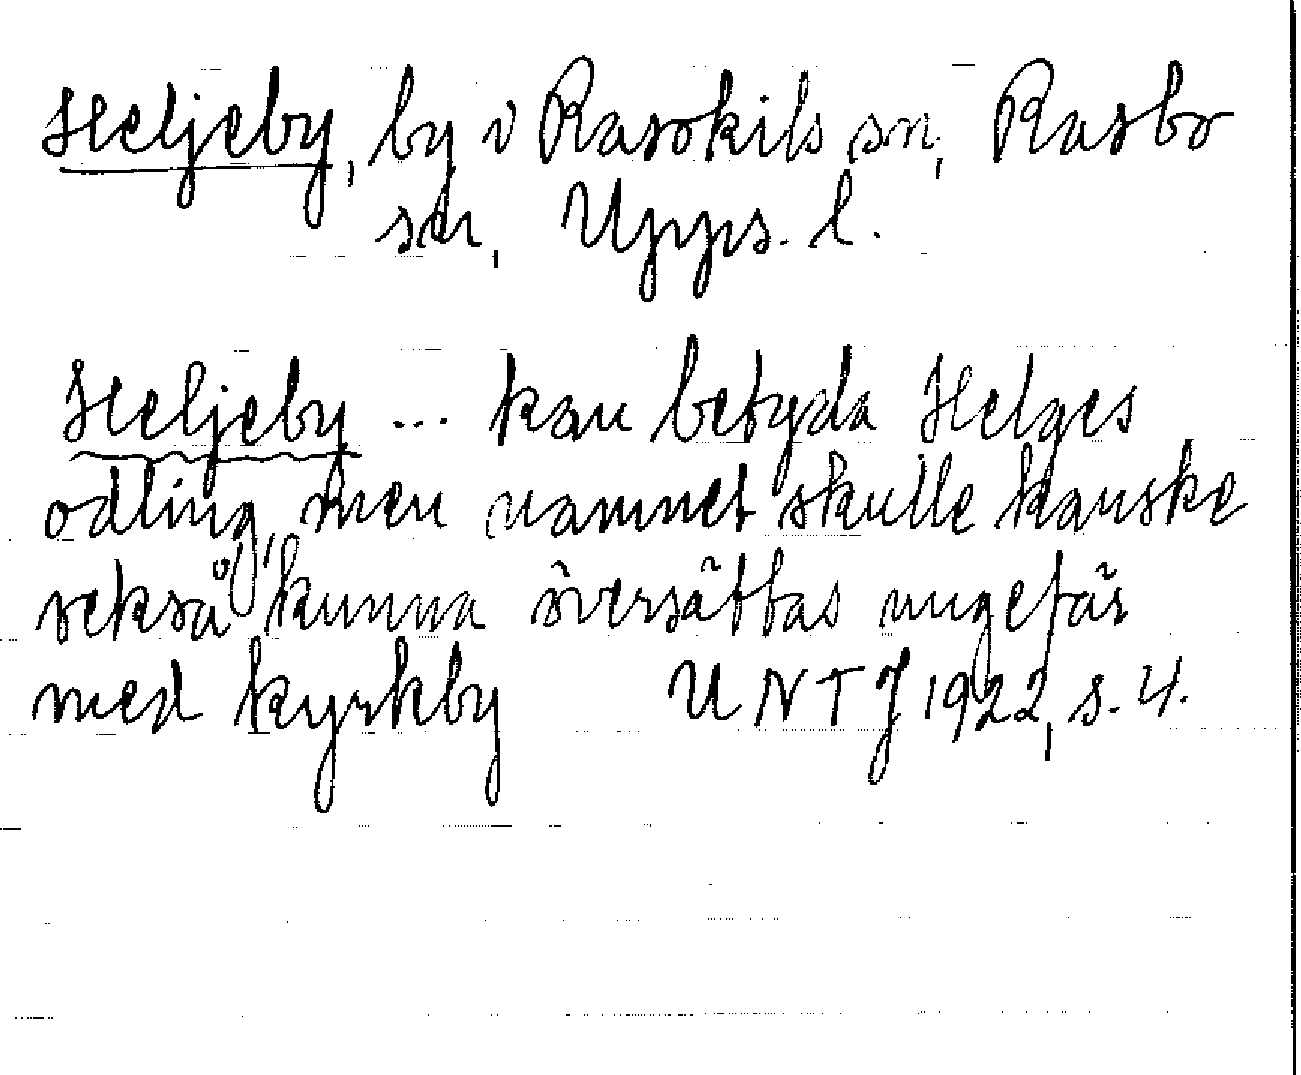 Heljeby, by i Rasbokils sn, Rasbo
sn, Upps. l.
Heljeby ... kan betyda Helges
odling, men namnet skulle kanske
också kunna översättas ungefär
med kyrkby UNTJ 1922, s. 4.